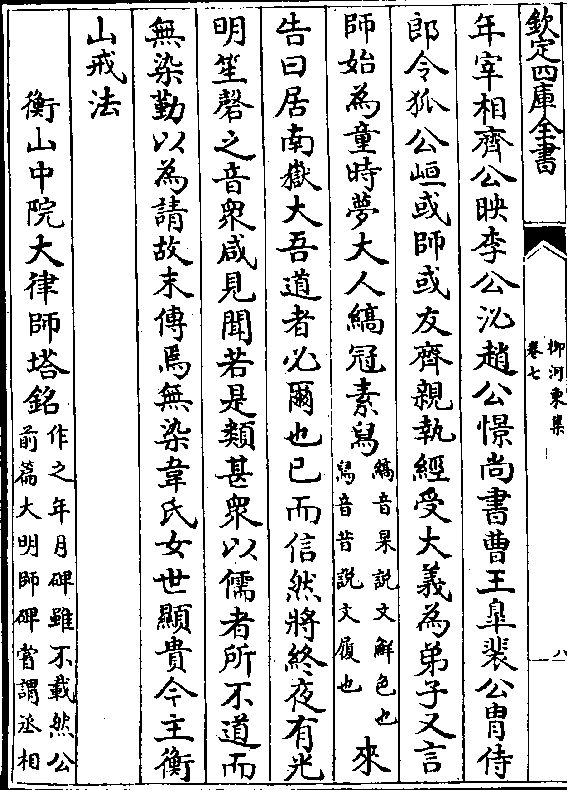 欽定四庫全書
柳河東集
卷七
八
年宰相齊公映李公泌趙公憬尚書曹王臯裴公胄侍
郎令狐公峘或師或友齊親執經受大義為弟子又言
師始為童時夢大人縞冠素舄縞音杲説文鮮色也舄音昔説文履也來
告曰居南嶽大吾道者必爾也已而信然將終夜有光
明笙磬之音衆咸見聞若是類甚衆以儒者所不道而
無染勤以為請故末傳焉無染韋氏女世顯貴今主衡
山戒法
衡山中院大律師塔銘作之年月碑雖不載然公前篇大明師碑嘗謂丞相